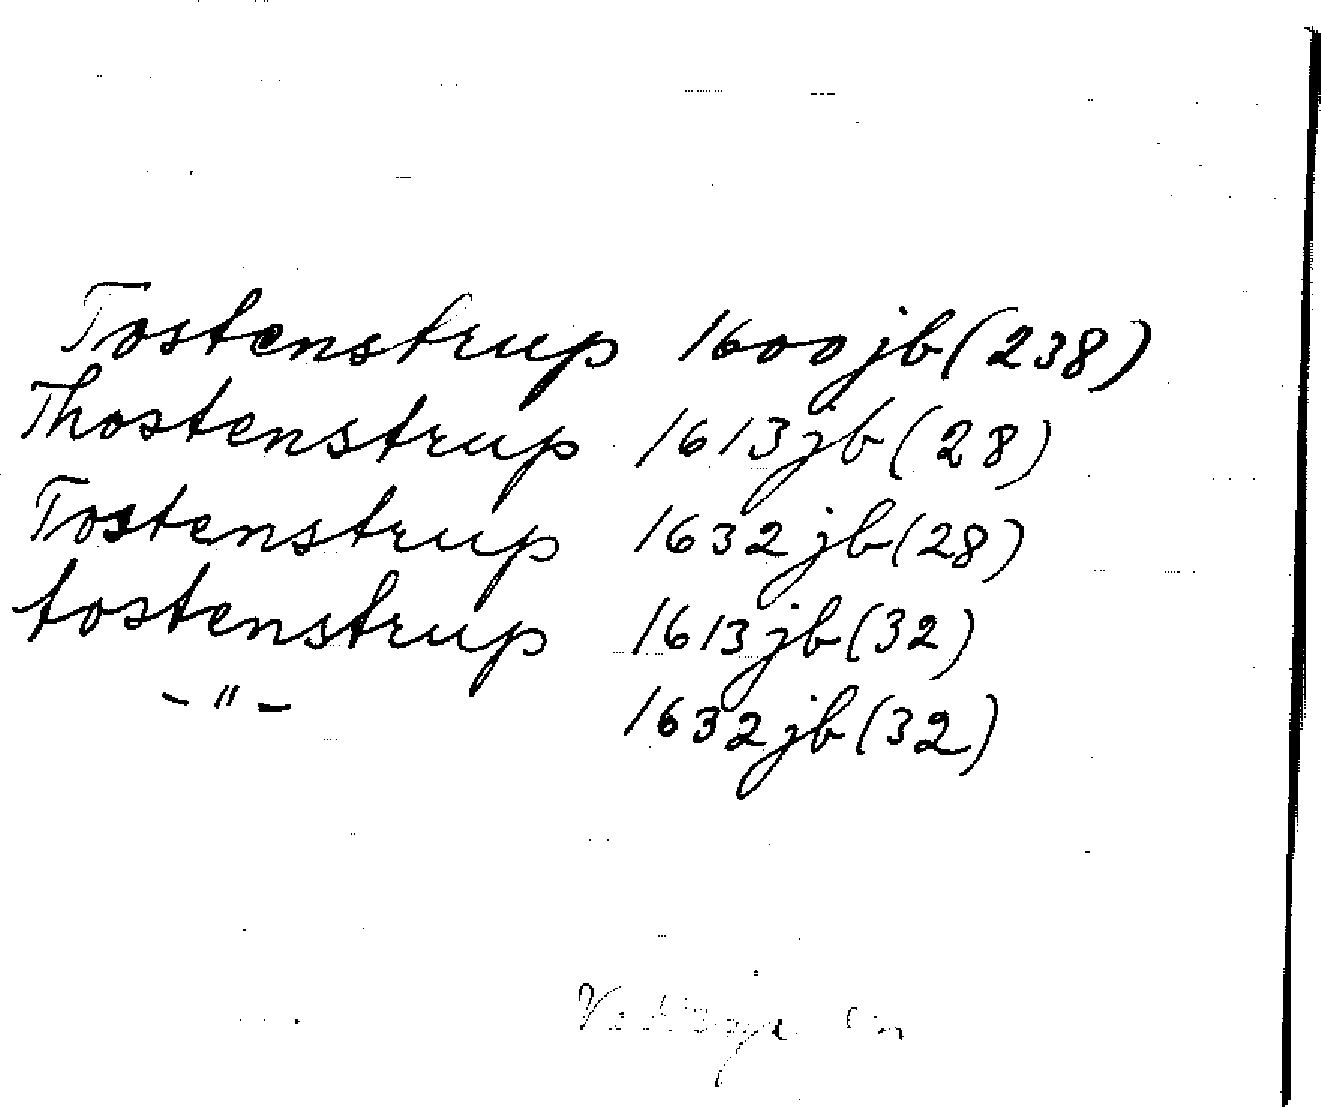 Tostenstrup 1600 jb (238)
Thostenstrup 1613 jb (28)
Tostenstrup 1632 jb (28)
tostenstrup 1613 jb (32)
-"- 1632 jb (32)